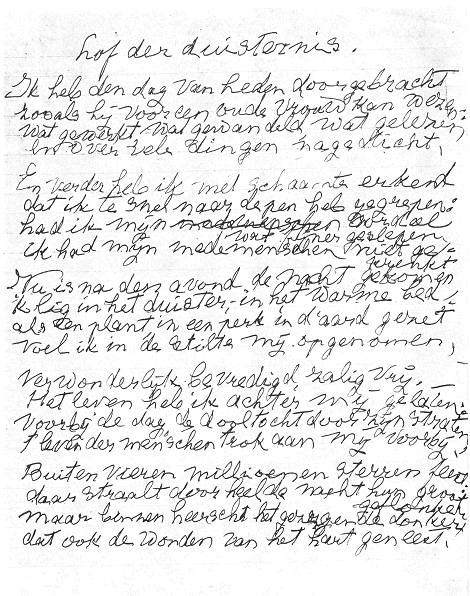 Lof der duisternis.
Ik heb den dag van heden doorgebracht
zooals hij voor een oude vrouw kan wezen:
wat gewerkt wat gewandeld wat gelezen
en over vele dingen nagedacht,
En verder heb ik met schaamte erkend
dat ik te snel naar de pen heb gegrepen:
had ik mijn oordeel
wat fijner geslepen
ik had mijn medemenschen niet ge-
krenkt
Nu is na den avond de nacht gekomen
ik lig in het duister, - in het warme bed
als een plant in een perk in d'aard gezet
voel ik in de stilte mij opgenomen,
Verwonderlijk bevredigd zalig vrij. -
Het leven heb ik achter mij gelaten
voorbij de dag de dooltocht door zijn straten
't leven der menschen trok aan mij voorbij.
Buiten vieren millioenen sterren feest
daar straalt door heel de nacht hun groot
gefonkel
maar binnen heerscht het zegenende donker
dat ook de wonden van het hart geneest.